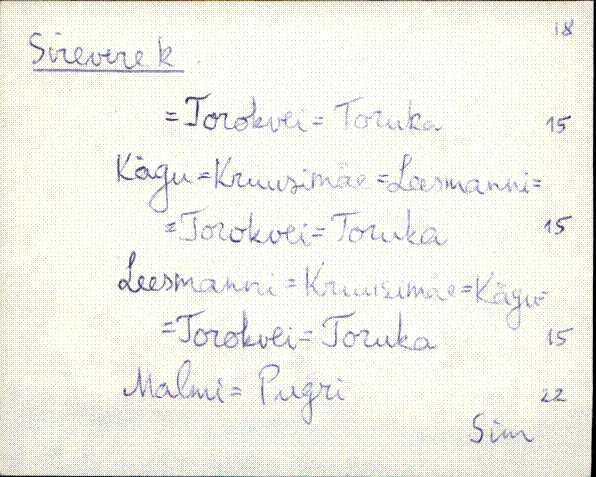 18
Sirevere k.
=Torokvei=Toruka 15
Kägu=Kruusimäe=Leesmanni=
=Torokvei=Toruka 15
Leesmanni=Kruusimäe=Kägu=
=Torokvei=Toruka 15
Malmi=Pugri 22
Sim